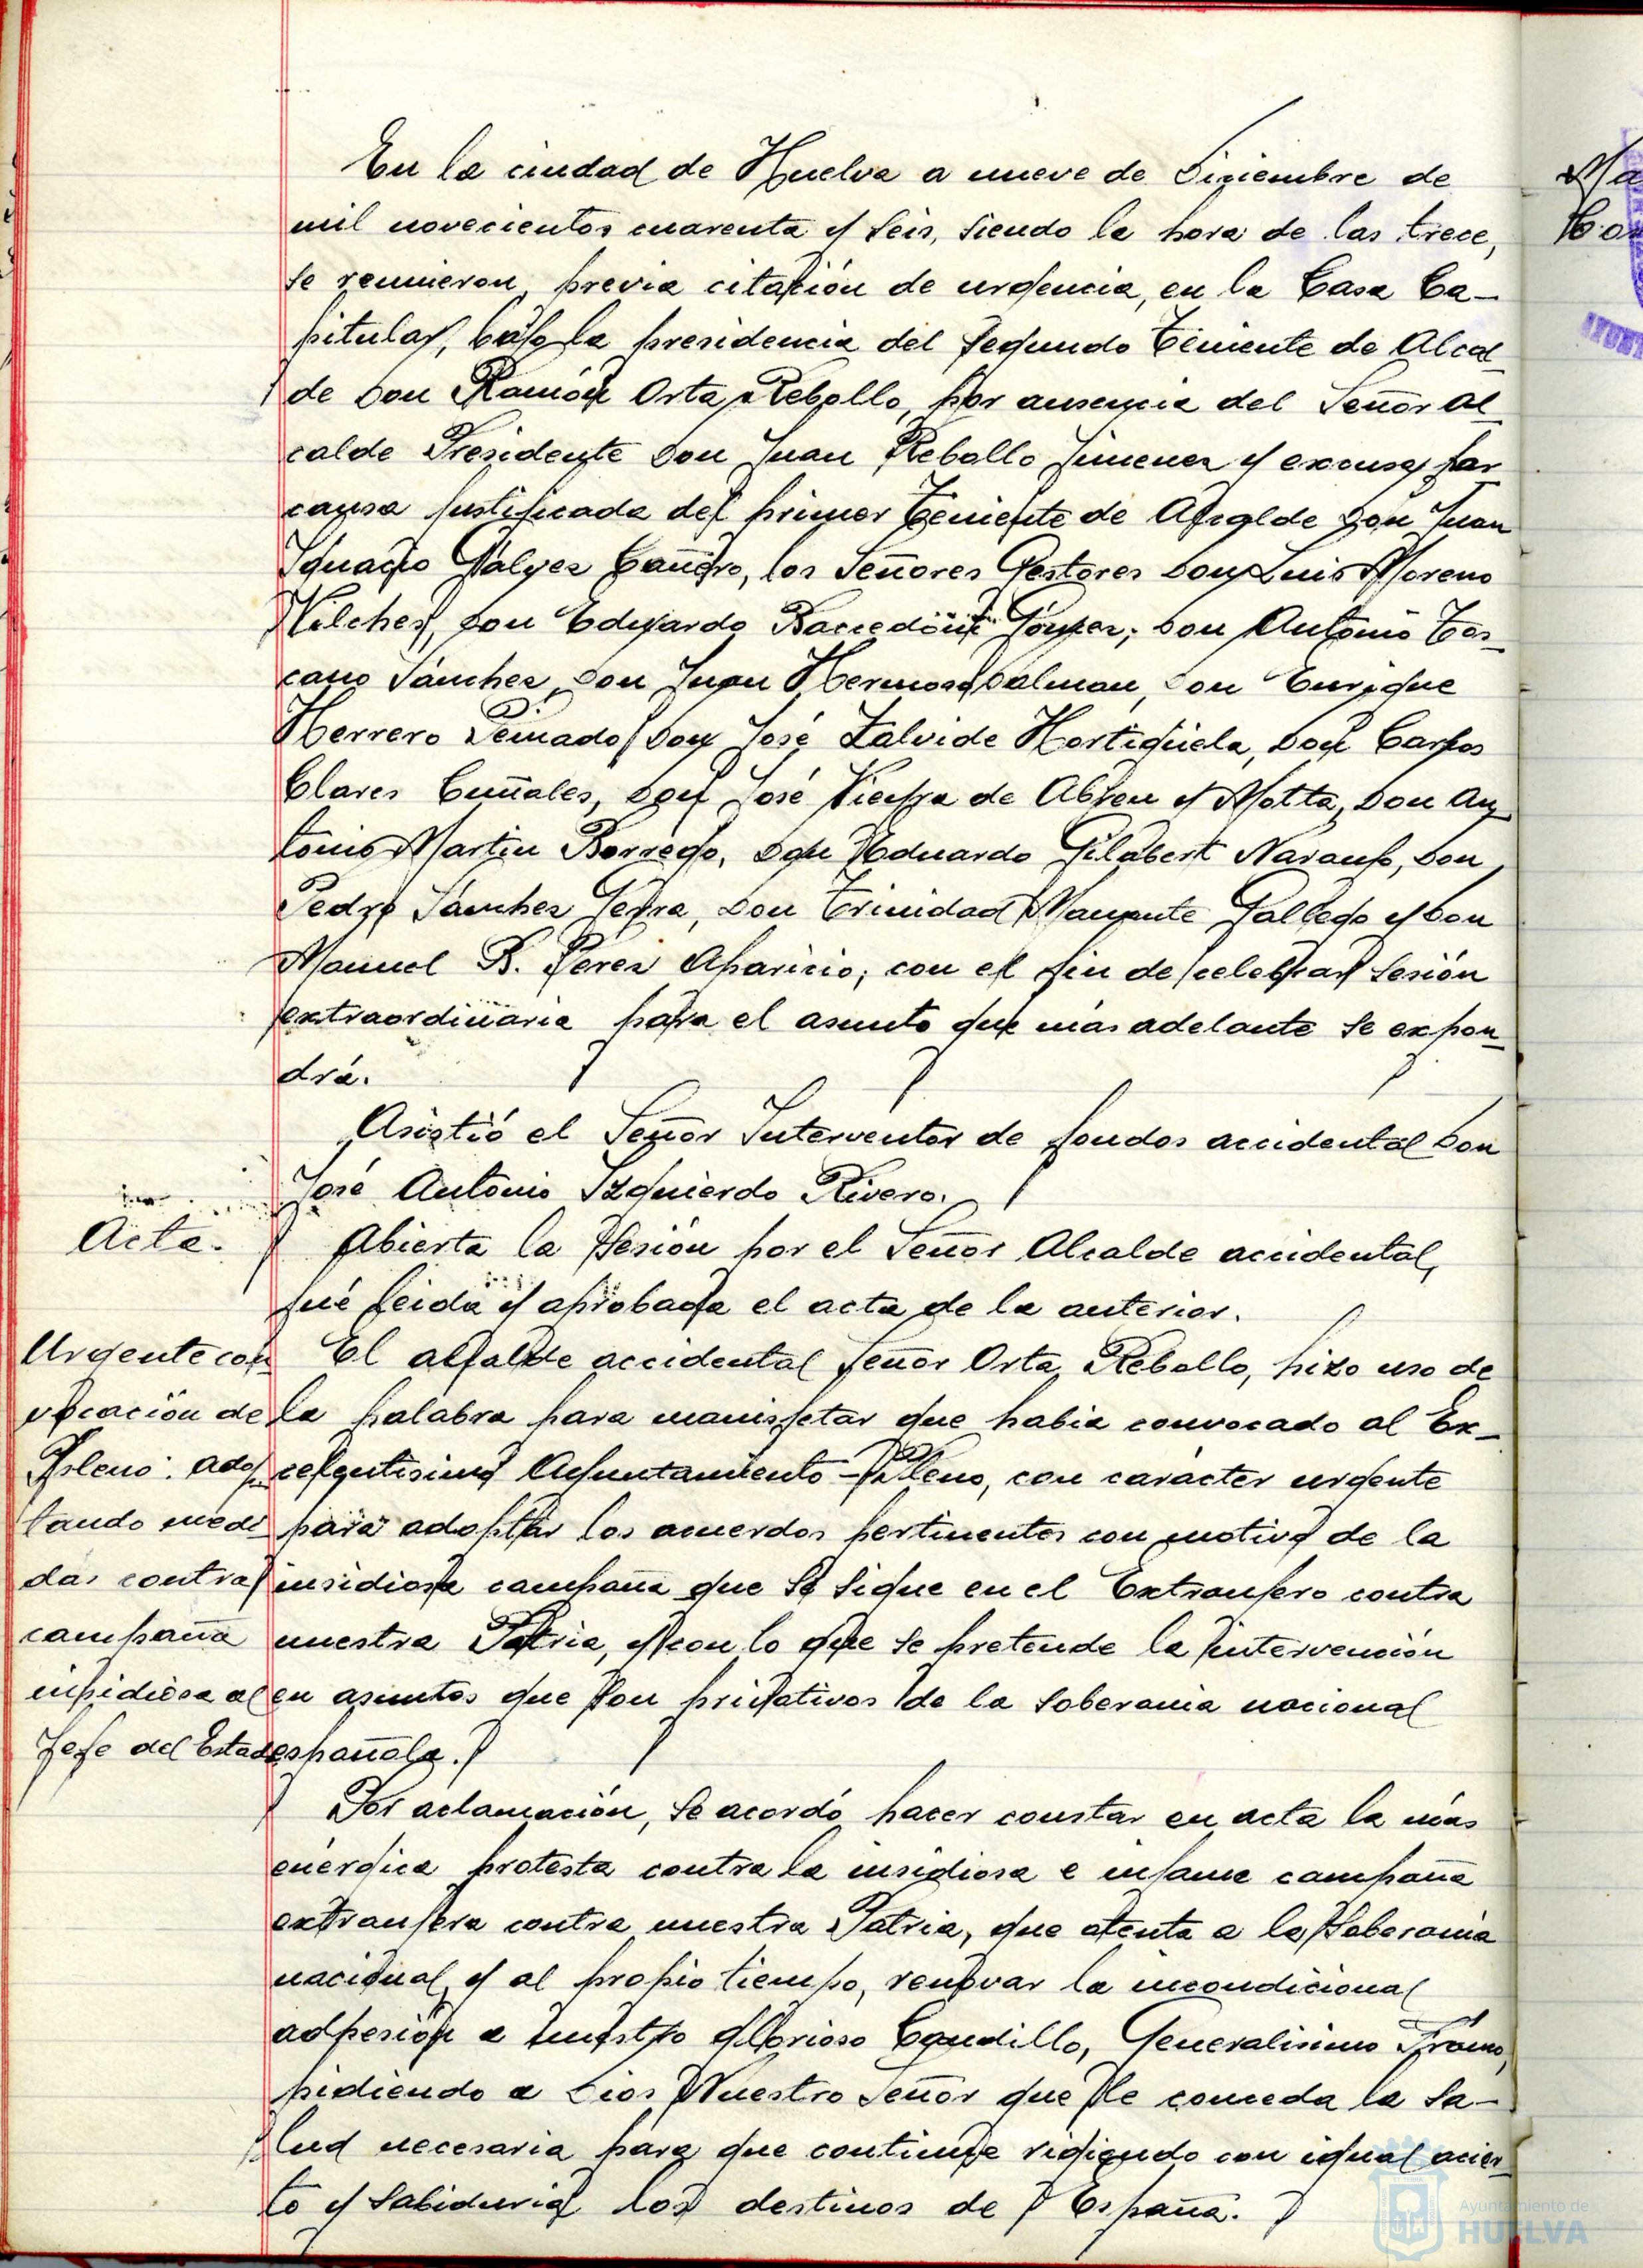 En la ciudad de Huelva a nueve de Diciembre de
mil novecientos cuarenta y seis, siendo la hora de las trece,
se reunieron, previa citación de urgencia, en la Casa Ca-
pitular, bajo la presidencia del Segundo Teniente de Alcal-
de Don Ramón Orta Rebollo, por ausencia del Señor Al-
calde Presidente Don Juan Rebollo Jimenez y excusa por
causa justificada del primer Teniente de Alcalde Don Juan
Ignacio Gálvez Cañero, los Señores Gestores Don Luis Moreno
Vilches, Don Eduardo Gómez; Don Antonio Tos-
cano Sánchez, Don Juan Hermoso Dalman, Don Enrique
Herrero Peinado, Don José Zalvide Hortigüela, Don Carlos
Clares Cuñales, Don José Vieyra de Abreu y Motta, Don An-
tonio Martin Borrego, Don Eduardo Gilabert Naranjo, Don
Pedro Sánchez Serra, Don Trinidad Mangante Gallego y Don
Manuel B. Perez Aparicio; con el fin de celebrar Sesión
extraordinaria para el asunto que más adelante se expon-
drá.
Asistió el Señor Interventor de fondos accidental Don
José Antonio Izquierdo Rivero.
Acta.
Abierta la Sesión por el Señor Alcalde accidental,
fué leida y aprobada el acta de la anterior.
Urgente con
vocación de
Pleno: adop
tando medi
das contra
campaña
insidiosa al
Jefe del Estado
El alcalde accidental Señor Orta Rebollo, hizo uso de
la palabra para manisfetar que habia convocado al Ex-
celentisimo Ayuntamiento-Pleno, con carácter urgente
para adoptar los acuerdos pertinentes con motivo de la
insidiosa campaña que se sigue en el Extranjero contra
nuestra Patria, y con lo que se pretende la intervención
en asuntos que son privativos de la soberania nacional
española.
Por aclamación, se acordó hacer constar en acta la más
enérgica protesta contra la insidiosa e infame campaña
extranjera contra nuestra Patria, que atenta a la Soberania
nacional, y al propio tiempo, renovar la incondicional
adhesión a nuestro glorioso Caudillo, Generalisimo Franco,
pidiendo a Dios Nuestro Señor que le conceda la sa-
lud necesaria para que continue rigiendo con igual acier-
to y sabiduria los destinos de España.
Ayuntamiento de
HUELVA